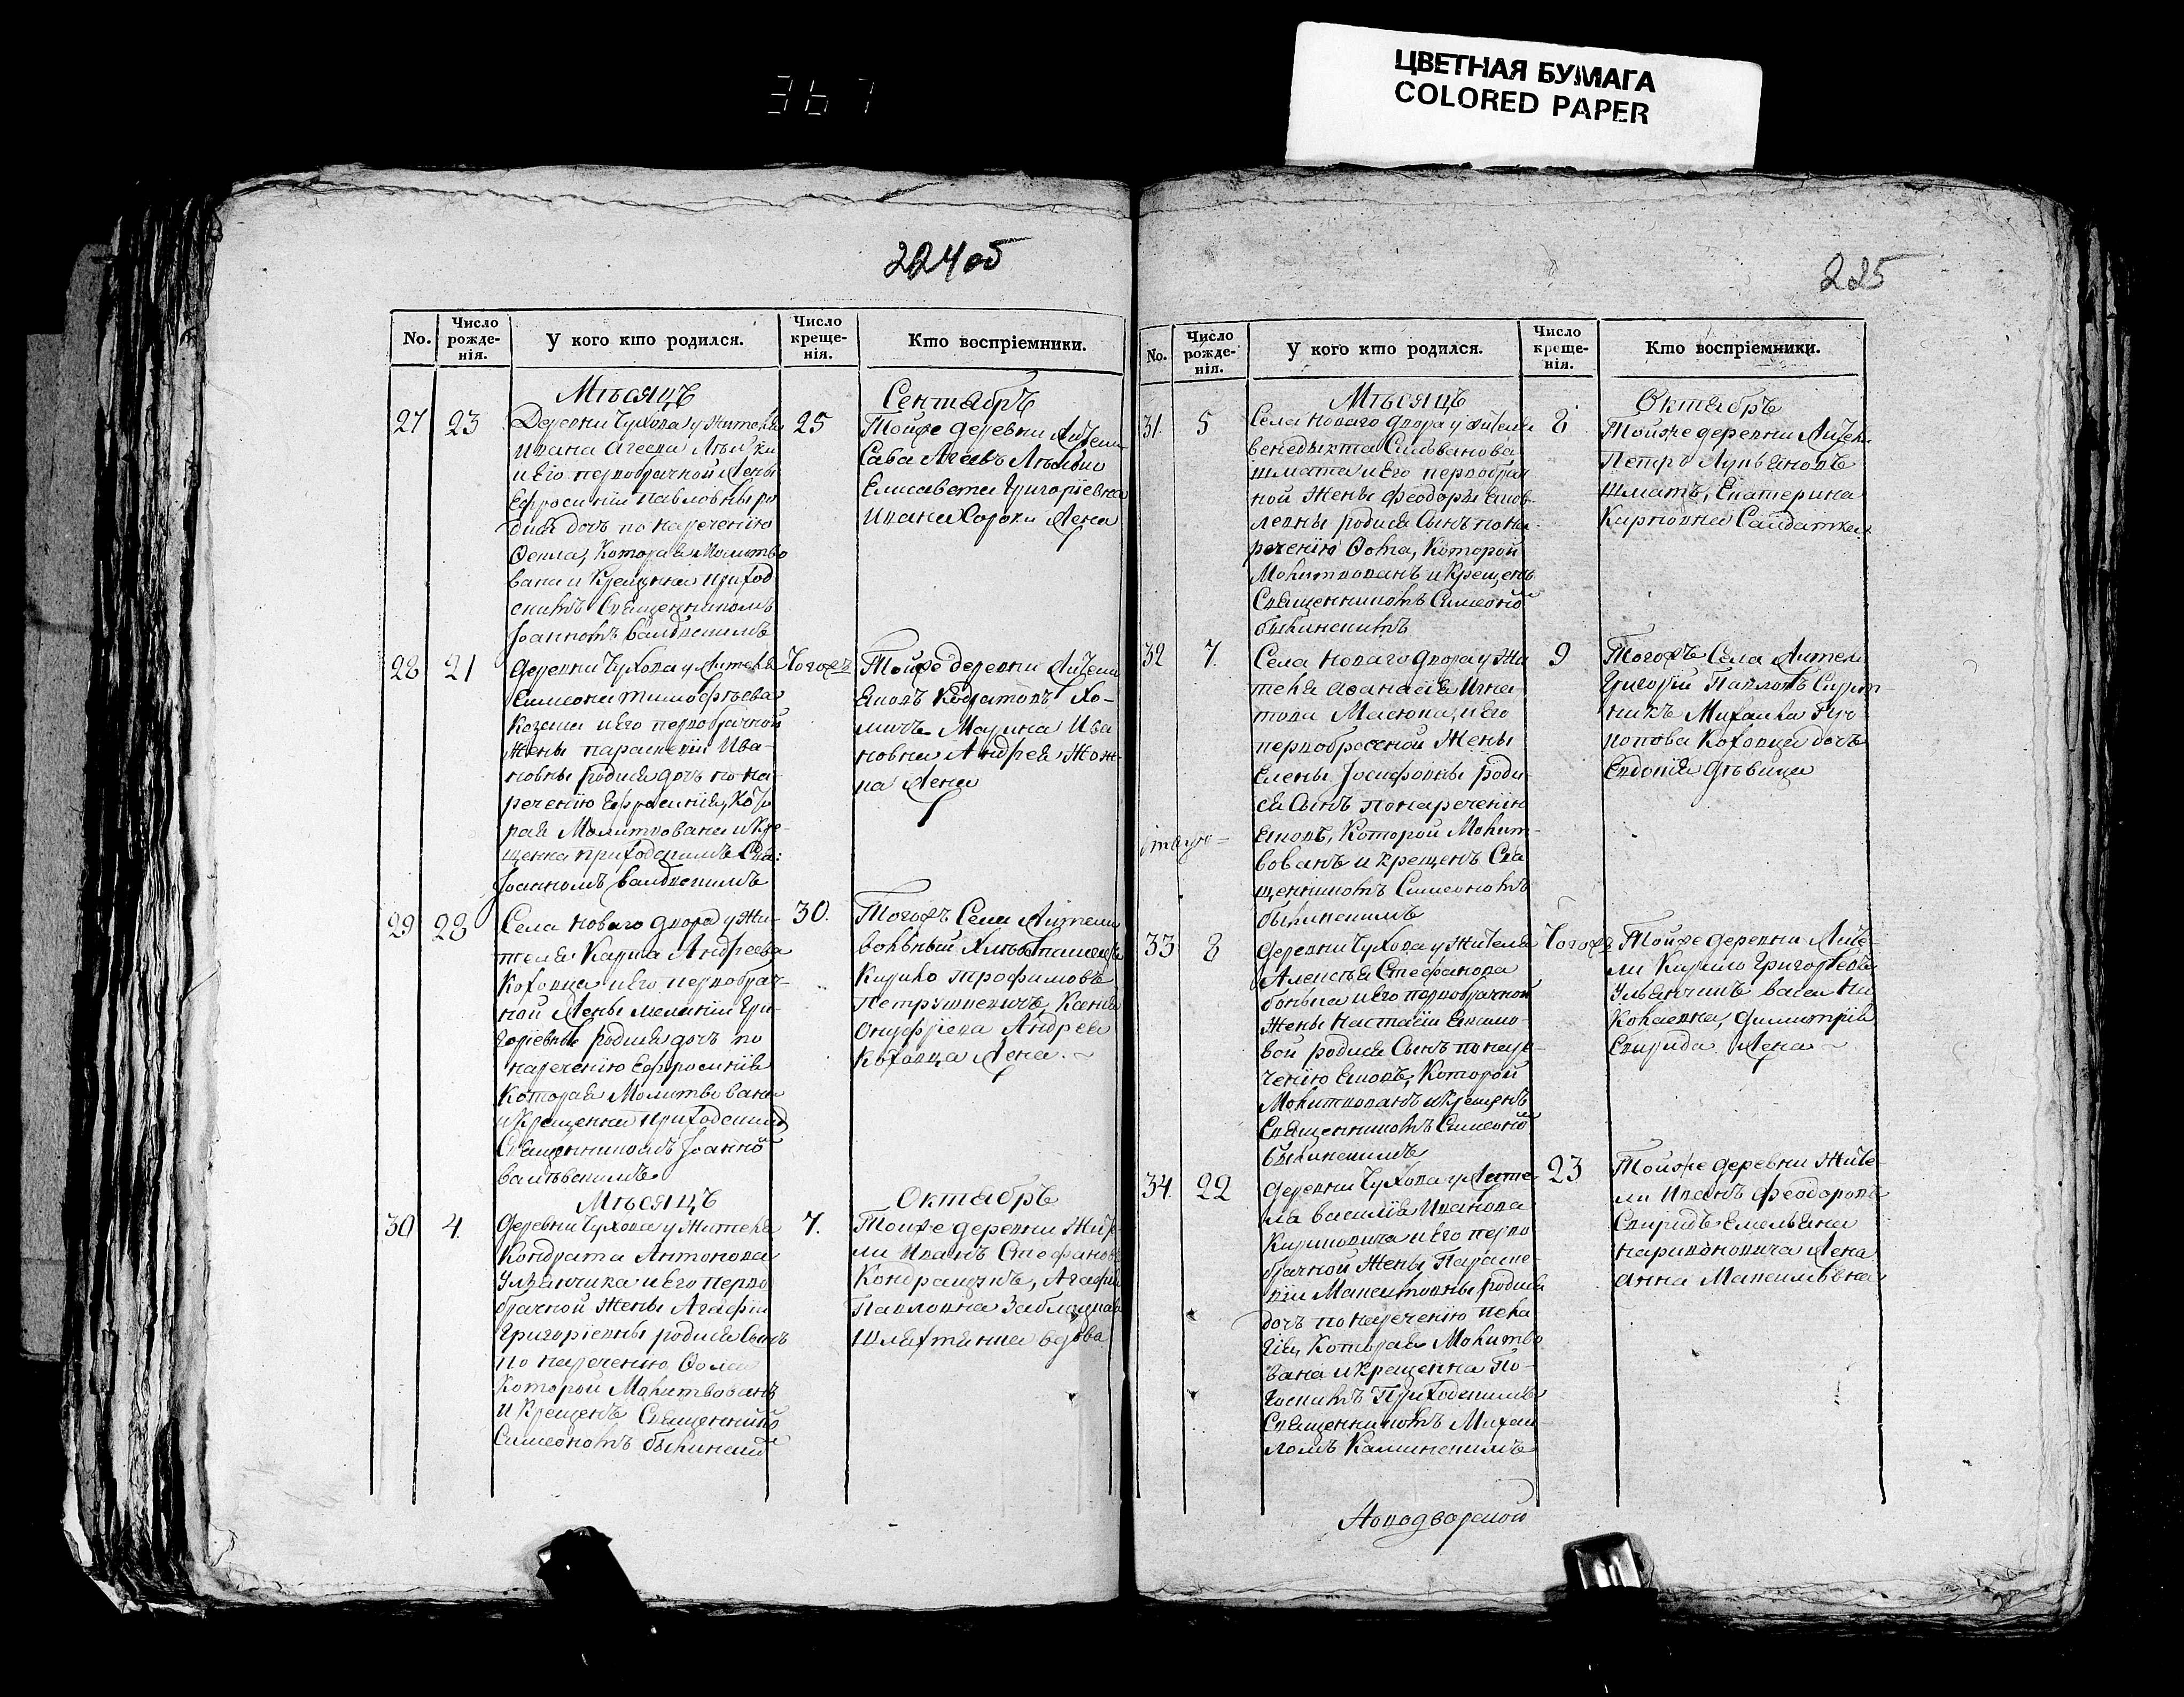 367
ЦВЕТНАЯ БУМАГА
COLORED PAPER
224 об
No. Число рожде-нія. У кого кто родился. Число креще-нія. Кто воспріемники.
Мѣсяцъ Сентябрь
27 23 25
Деревни Чухова у жителя
Ивана Агеева
и его первобрачной жены
Ефросиніи Павловны ро
дися дочь по наречению
Ѳекла, которая молитво
вана и крещенна приход
скимъ Священникомъ
Іоанномъ
Тойже деревни жители
Сава Агеевъ
Елисавета Григоріевна
Ивана Сороки жена
28 21 Тогожъ
Деревни Чухова у жителя
Симеона Тимофѣева
и его первобрачной
жены Параскевіи Ива-
новны родися дочь по на-
речению Ефросинія, кото
рая молитвована и кре-
щенна приходскимъ Свя:
Іоанномъ
Тойже деревни жители
Яковъ Кодратовъ Хо-
мичъ Марина Ива
новна Андрея
жена
29 28 30.
Села Новаго двора у жи-
теля Карпа Андреева
Коховца и его первобрач-
ной жены Меланіи Гри-
горіевны родися дочь по
наречению Ефросинія
которая молитвована
и крещенна приходскимъ
Священникомъ Іоанно
Тогожъ Села жители
вольный
Кирило Трофимовъ
Петрушкевичъ, Ксенія
Онуфріева Андрея
Коховца жена.
Мѣсяцъ Октябрь
30 4. 7.
Деревни Чухова у жителя
Кондрата Антонова
Ульянчика и его перво
брачной жены Агафіи
Григоріевны родися сынъ
по наречению Ѳома
которой молитвованъ
и крещенъ Священнико
Симеономъ
Тойже деревни жите
ли Иванъ Стефановъ
Кондрацюкъ, Агафія
Павловна
Шляхтянка вдова
225
No. Число рожде-нія. У кого кто родился. Число креще-нія. Кто воспріемники.
Мѣсяцъ Октябрь
31 5 8
Села Новаго двора у жителя
Венедыкта Сильванова
Шмата и его первобрач
ной жены Феодоры Яков-
левны родися Сынъ по на-
речению Ѳома, которой
молитвованъ и крещенъ
Священникомъ Симеоно
Тойже деревни жители
Петръ Лукьяновъ
Шматъ, Екатерина
Карповна
32 7. 9
Села Новаго двора у жи
теля Аѳанасія Игна
това и его
первобрачной жены
Елены Іосифовны роди
ся Сынъ по наречению
Яковъ, которой молит-
вованъ и крещенъ Свя
щенникомъ Симеономъ
Тогожъ Села жители
Григорій Павловъ
Михаила
Коховца дочь
Евдокія дѣвица
33 8 Тогожъ
Деревни Чухова у жителя
Алексѣя Стефанова
и его первобрачной
жены Настасіи Якимо-
вой родися Сынъ по наре-
чению Яковъ, которой
молитвованъ и крещенъ
Священникомъ Симеоно
Тойже деревни жите-
ли Кирило Григорьевъ
Ульянчикъ Васи Ни
колаевна, Димитрія
Свирида жена
34. 22 23
Деревни Чухова у жите-
ля Василія Иванова
и его перво
брачной жены Параске-
віи Максимовны родися
дочь по наречению Пела
гія, которая молитво
вана и крещенна По-
госкимъ Приходскимъ
Священникомъ Михаи
ломъ Каминскимъ
Тойже деревни жите-
ли Иванъ Феодоровъ
Свиридъ Емельяна
жена
Анна Максимовна
Новодворской